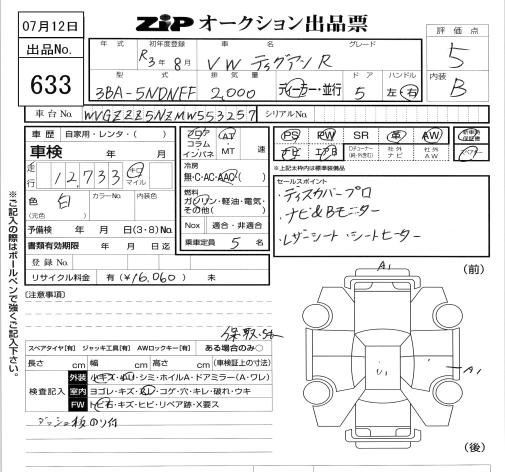 07月12日
ZiP オークション出品票
出品No.
633
年式 初年度登録 車名 グレード
R3年8月 VW ティグアンR
型式 排気量 ドア ハンドル
3BA-5NDNFF 2,000 ディーラー・並行 5 左・右
評価点
5
内装
B
車台No. WVGZZZ5NZMW553257 シリアルNo.
車歴 自家用・レンタ・( )
車検 年 月
走行 12,733 キロ マイル
色 白 カラーNo. 内装色
(元色)
予備検 年 月 日(3・8)No.
書類有効期限 年 月 日迄
登録No.
リサイクル料金 有(¥16,060) 未
フロア コラム インパネ AT・MT 速
冷房
無・C・AC・AAC
燃料
ガソリン・軽油・電気・その他( )
Nox 適合・非適合
乗車定員 5 名
PS PW SR 革 AW 新車時保証書
ナビ エアB Dチューナー(純・外・別り) 社外ナビ 社外AW
*上記太枠は標準装備品
セールスポイント
・ディスカバープロ
・ナビ&Bモニター
・レザーシート・シートヒーター
※ご記入の際はボールペンで強くご記入下さい。
[注意事項]
スペアタイヤ[有] ジャッキ工具[有] AWロックキー[有] ある場合のみ○
長さ cm 幅 cm 高さ cm (車検証上の寸法)
検査記入
外装 小キズ・小凹・シミ・ホイルA・ドアミラー(A・ワレ)
室内 ヨゴレ・キズ・スレ・コゲ・穴・キレ・破れ・ウキ
FW トビ石・キズ・ヒビ・リペア跡・X要ス
ダッシュ板のり付
(前)
A1
U1
A1
(後)